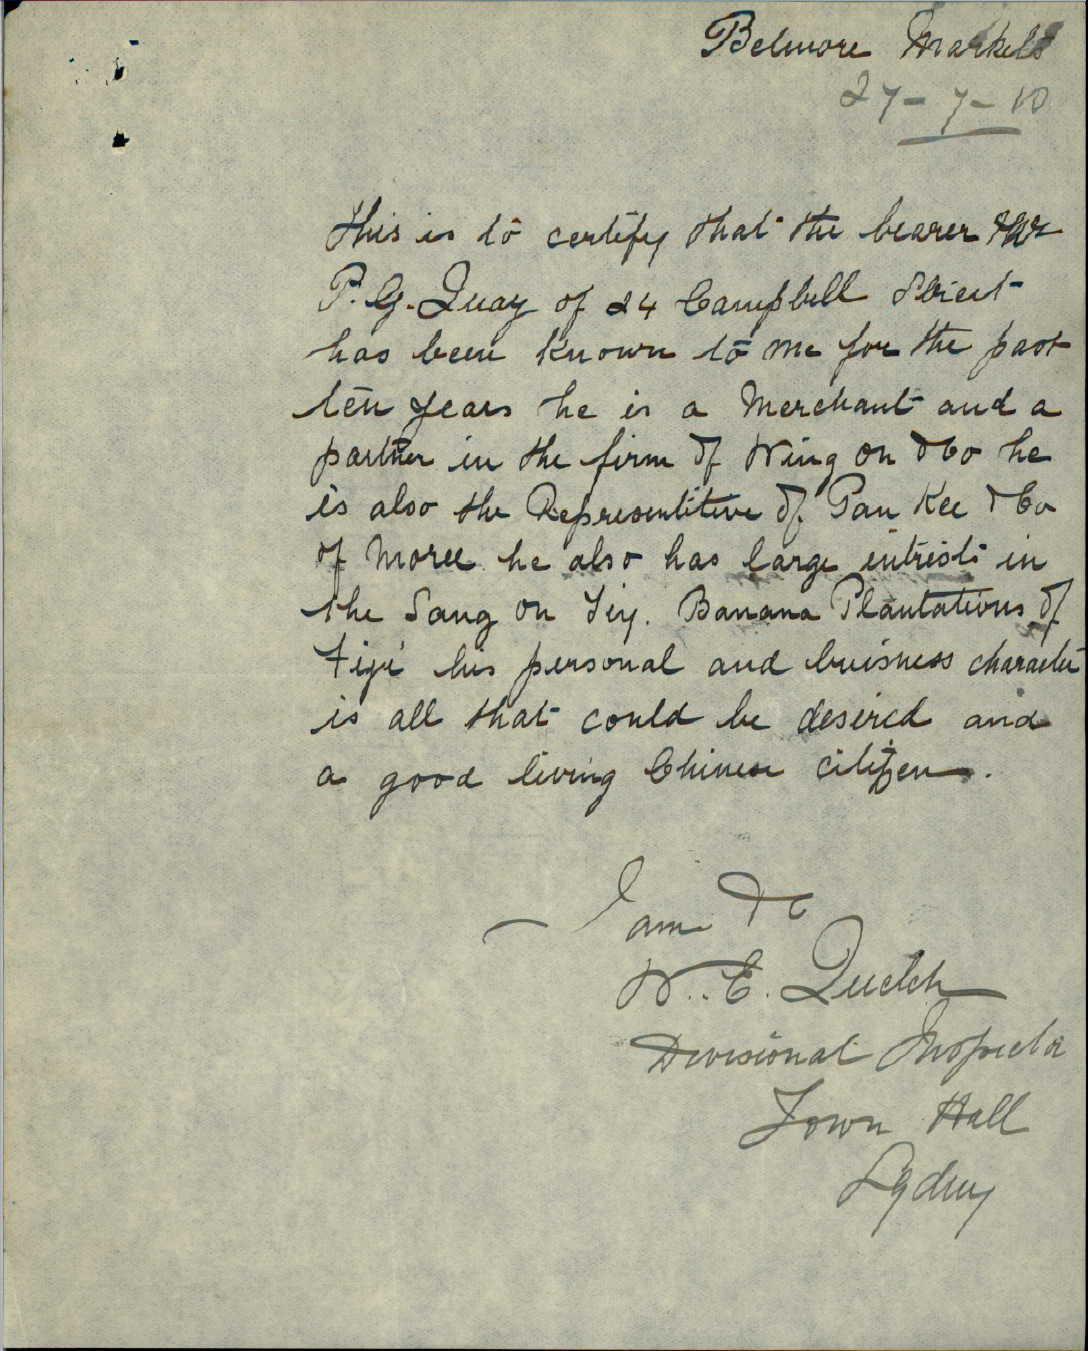 Belmore Markets
27-7-10
This is to certify that the bearer Mr
P. G. Quay of 24 Campbell Street
has been known to me for the past
ten years he is a Merchant and a
partner in the firm of Wing On & Co he
is also the Representitive of Pan Kee & Co
of Moree he also has large intrists in
the Sang On Tiy. Banana Plantations of
Fiji his personal and buisness character
is all that could be desired and
a good living Chinese citizen.
I am &c
W. E. Quelch
Divisional Inspector
Town Hall
Sydney